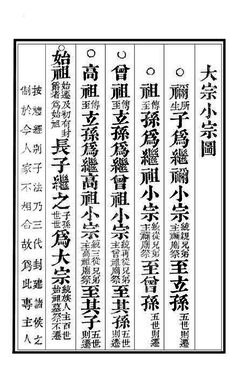 大宗小宗圖
○禰所生子爲繼禰小宗統親兄弟主禰廟祭至玄孫五世則遷
○祖傳至孫爲繼祖小宗統從兄弟主祖廟祭至曾孫五世則遷
○曾祖傳至玄孫爲繼曾祖小宗統再從兄弟主曾祖廟祭至其孫五世則遷
○高祖傳至玄孫爲繼高祖小宗統三從兄弟主高祖廟祭至其子五世則遷
始祖始遷及初有封爵者爲始祖長子繼之子孫世世爲大宗統族人主百世始祖墓祭不遷
按禮經別子法乃三代封建諸侯之
制於今人家不相合故爲此專主人